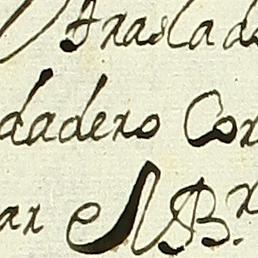 Traslado
dadero Cor
ar el Br.